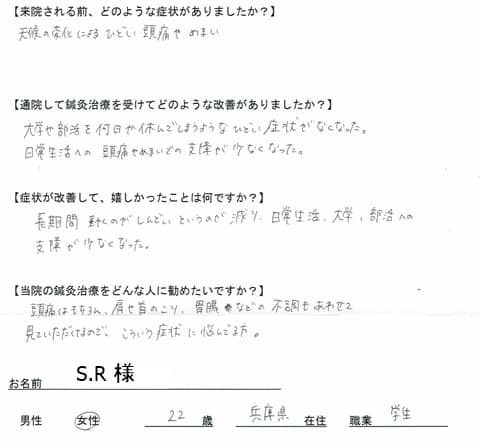 【来院される前、どのような症状がありましたか？】
天候の変化によるひどい頭痛やめまい
【通院して鍼灸治療を受けてどのような改善がありましたか？】
大学や部活を何日か休んでしまうようなひどい症状がなくなった。
日常生活への頭痛やめまいでの支障が少なくなった。
【症状が改善して、嬉しかったことは何ですか？】
長期間動くのがしんどいというのが減り、日常生活、大学、部活への
支障が少なくなった。
【当院の鍼灸治療をどんな人に勧めたいですか？】
頭痛はもちろん、肩や首のこり、胃腸などの不調もあわせて
見ていただけるので、こういう症状に悩んでる方。
お名前 S.R 様
男性 女性 22 歳 兵庫県 在住 職業 学生